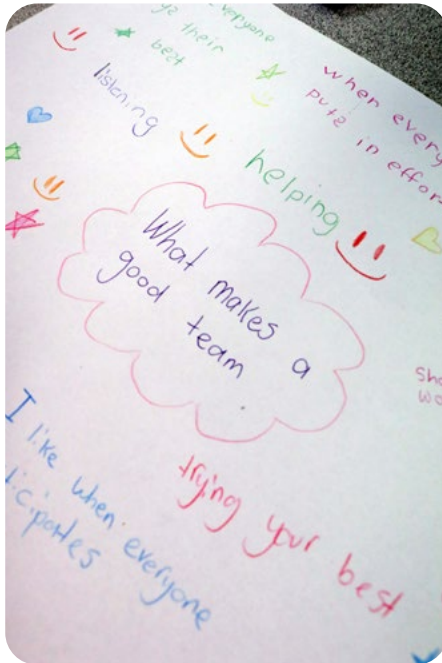 everyone
their
best
when every
puts in effor
listening
helping
What makes a
good team
sha
wo
trying your best
I like when everyone
ticipates